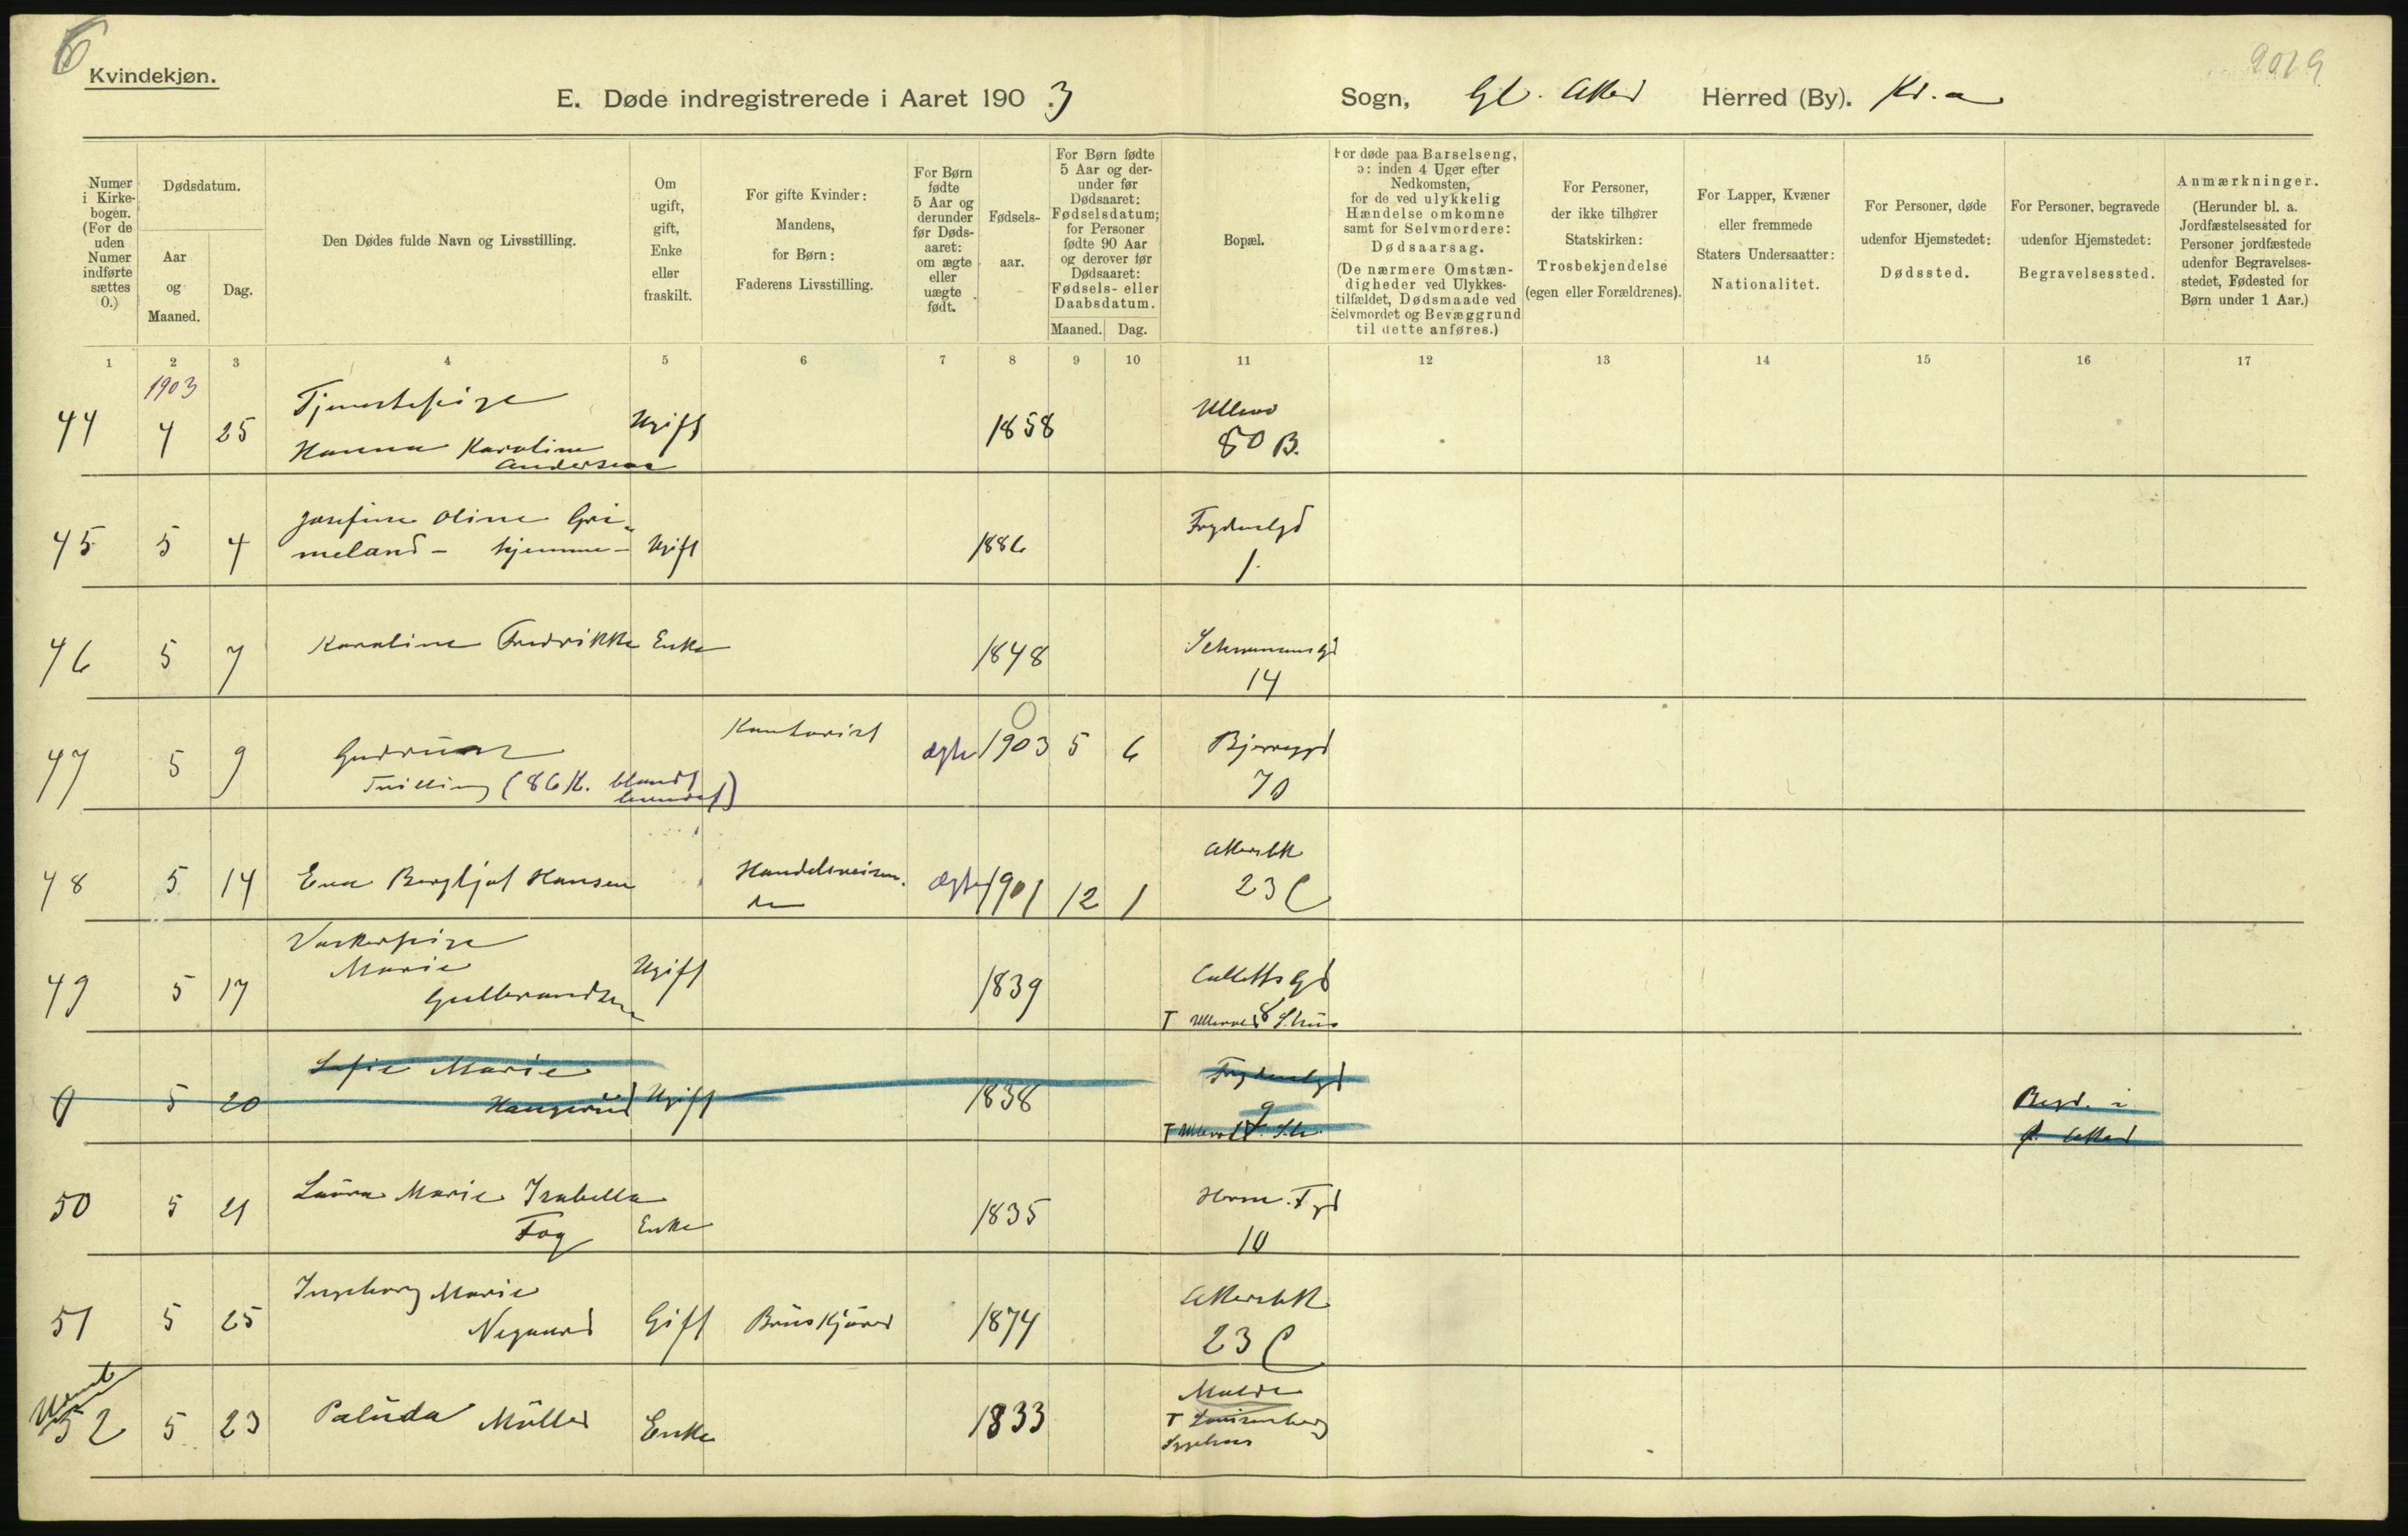 6
Kvindekjøn.
2019
E. Døde indregistrerede i Aaret 1903
Sogn, Gl. Aker Herred (By). Kr.a
Numer i Kirkebogen. (For de uden Numer indførte sættes 0.)
Dødsdatum.
Aar og Maaned.
Dag.
Den Dødes fulde Navn og Livsstilling.
Om ugift, gift, Enke eller fraskilt.
For gifte Kvinder: Mandens, for Børn: Faderens Livsstilling.
For Børn fødte 5 Aar og derunder før Dødsaaret: om ægte eller uægte født.
Fødselsaar.
For Børn fødte 5 Aar og derunder før Dødsaaret: Fødselsdatum; for Personer fødte 90 Aar og derover før Dødsaaret: Fødsels- eller Daabsdatum.
Maaned. Dag.
Bopæl.
For døde paa Barselseng, ɔ: inden 4 Uger efter Nedkomsten, for de ved ulykkelig Hændelse omkomne samt for Selvmordere: Dødsaarsag. (De nærmere Omstændigheder ved Ulykkestilfældet, Dødsmaade ved Selvmordet og Bevæggrund til dette anføres.)
For Personer, der ikke tilhører Statskirken: Trosbekjendelse (egen eller Forældrenes).
For Lapper, Kvæner eller fremmede Staters Undersaatter: Nationalitet.
For Personer, døde udenfor Hjemstedet: Dødssted.
For Personer, begravede udenfor Hjemstedet: Begravelsessted.
Anmærkninger. (Herunder bl. a. Jordfæstelsessted for Personer jordfæstede udenfor Begravelsesstedet, Fødested for Børn under 1 Aar.)
1 2 3 4 5 6 7 8 9 10 11 12 13 14 15 16 17
1903
Tjenestepige
44 4 25 Hanna Karoline Andersen Ugift 1858 80 B.
Josefine Oline Gri-
45 5 4 meland - hjemme - Ugift 1886 Frydenlgd 1.
46 5 7 Karoline Fredrikke Enke 1848 Schwensensgd 14
47 5 9 Gudrun Kontorist ægte 1903 5 6 Bjerregd 70
Tvilling (86 K. blandt levendef)
48 5 14 Eva Bergljot Hansen Handelsreisen-
de Ægte 1901 12 1 Akersbk 23 C
Vaskerpige
49 5 17 Marie Gulbrandsen Ugift 1839 Colletts Gd 8
T Ullevol S.hus
0 5 20 Sofie Marie Haugerud Ugift 1838 Frydenlgd 9
T Ullevol S.h. Begr. i Aker
50 5 21 Laura Marie Isabella
Fog Enke 1835 Herm. F gd 10
51 5 25 Ingeborg Marie
Nygaard Gift Bruskjører 1874 Akersbk 23 C
52 5 23 Paluda Müller Enke 1833 Molde
T Louisenberg
Sygehus